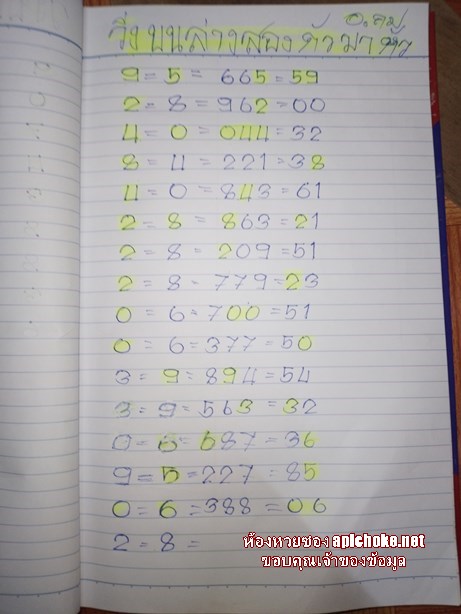 อ.คม
วิ่งบนล่างสองตัวมาตัว
9 = 5 = 665 = 59
2 = 8 = 962 = 00
4 = 0 = 044 = 32
8 = 4 = 221 = 38
4 = 0 = 843 = 61
2 = 8 = 863 = 21
2 = 8 = 209 = 51
2 = 8 = 779 = 23
0 = 6 = 700 = 51
0 = 6 = 377 = 50
3 = 9 = 894 = 54
3 = 9 = 563 = 32
0 = 6 = 687 = 36
9 = 5 = 227 = 85
0 = 6 = 388 = 06
2 = 8 =
ห้องหวยซอง apichoke.net
ขอบคุณเจ้าของข้อมูล